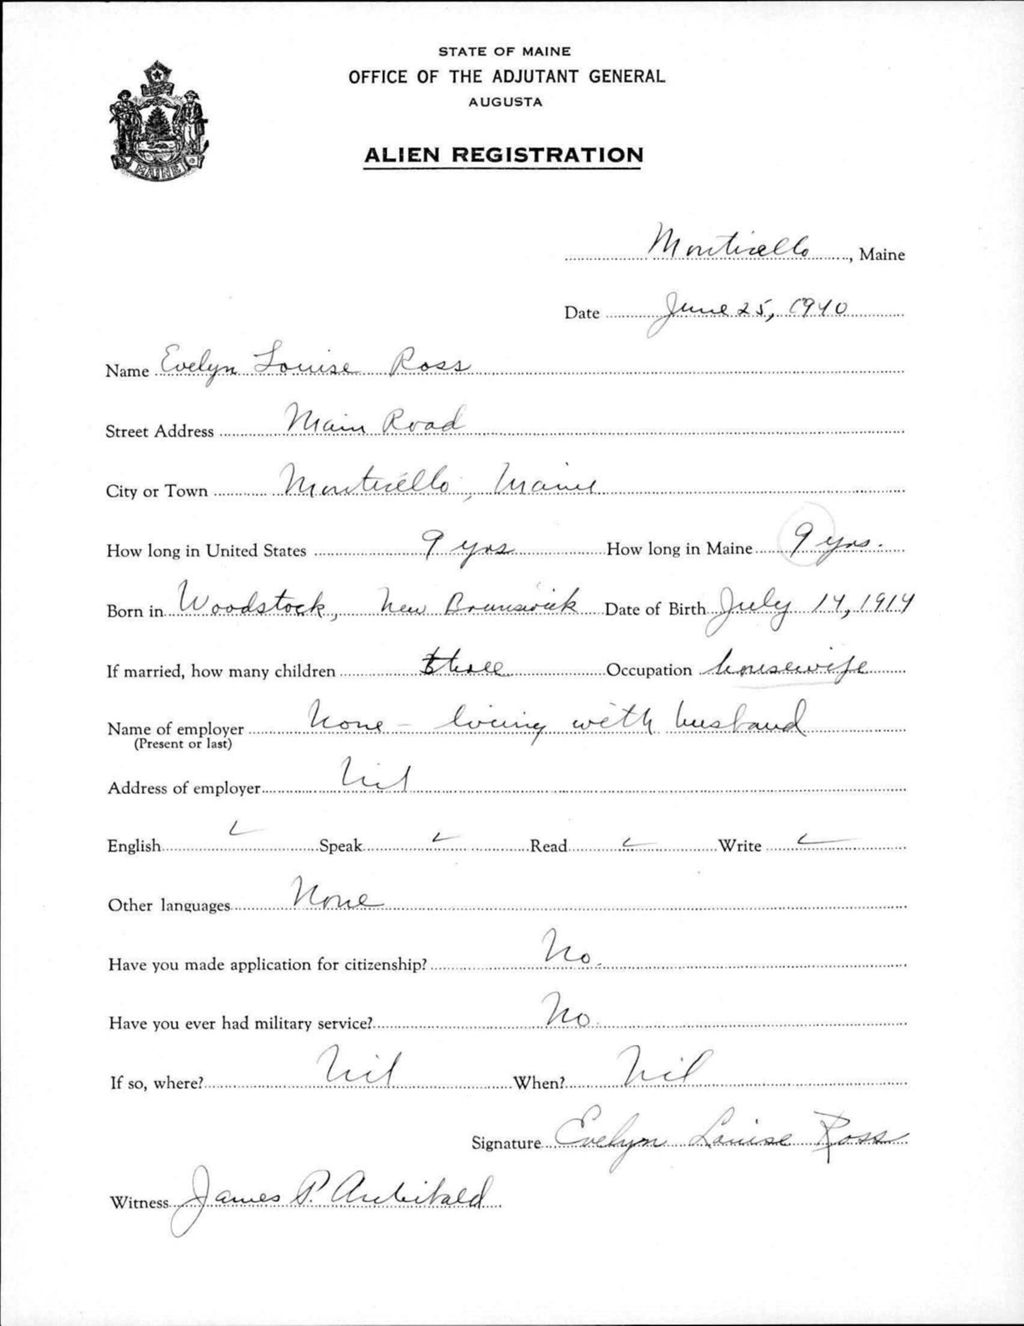 STATE OF MAINE
OFFICE OF THE ADJUTANT GENERAL
AUGUSTA
ALIEN REGISTRATION
MAINE
Monticello, Maine
Date June 25, 1940
Name Evelyn Louise Ross
Street Address Main Road
City or Town Monticello, Maine
How long in United States 9 yrs How long in Maine 9 yrs.
Born in Woodstock, New Brunswick Date of Birth July 14, 1914
If married, how many children three Occupation housewife
Name of employer None - living with husband
(Present or last)
Address of employer Nil
English ✓ Speak ✓ Read ✓ Write ✓
Other languages None
Have you made application for citizenship? No.
Have you ever had military service? No.
If so, where? Nil When? Nil
Signature Evelyn Louise Ross
Witness James P. Archibald